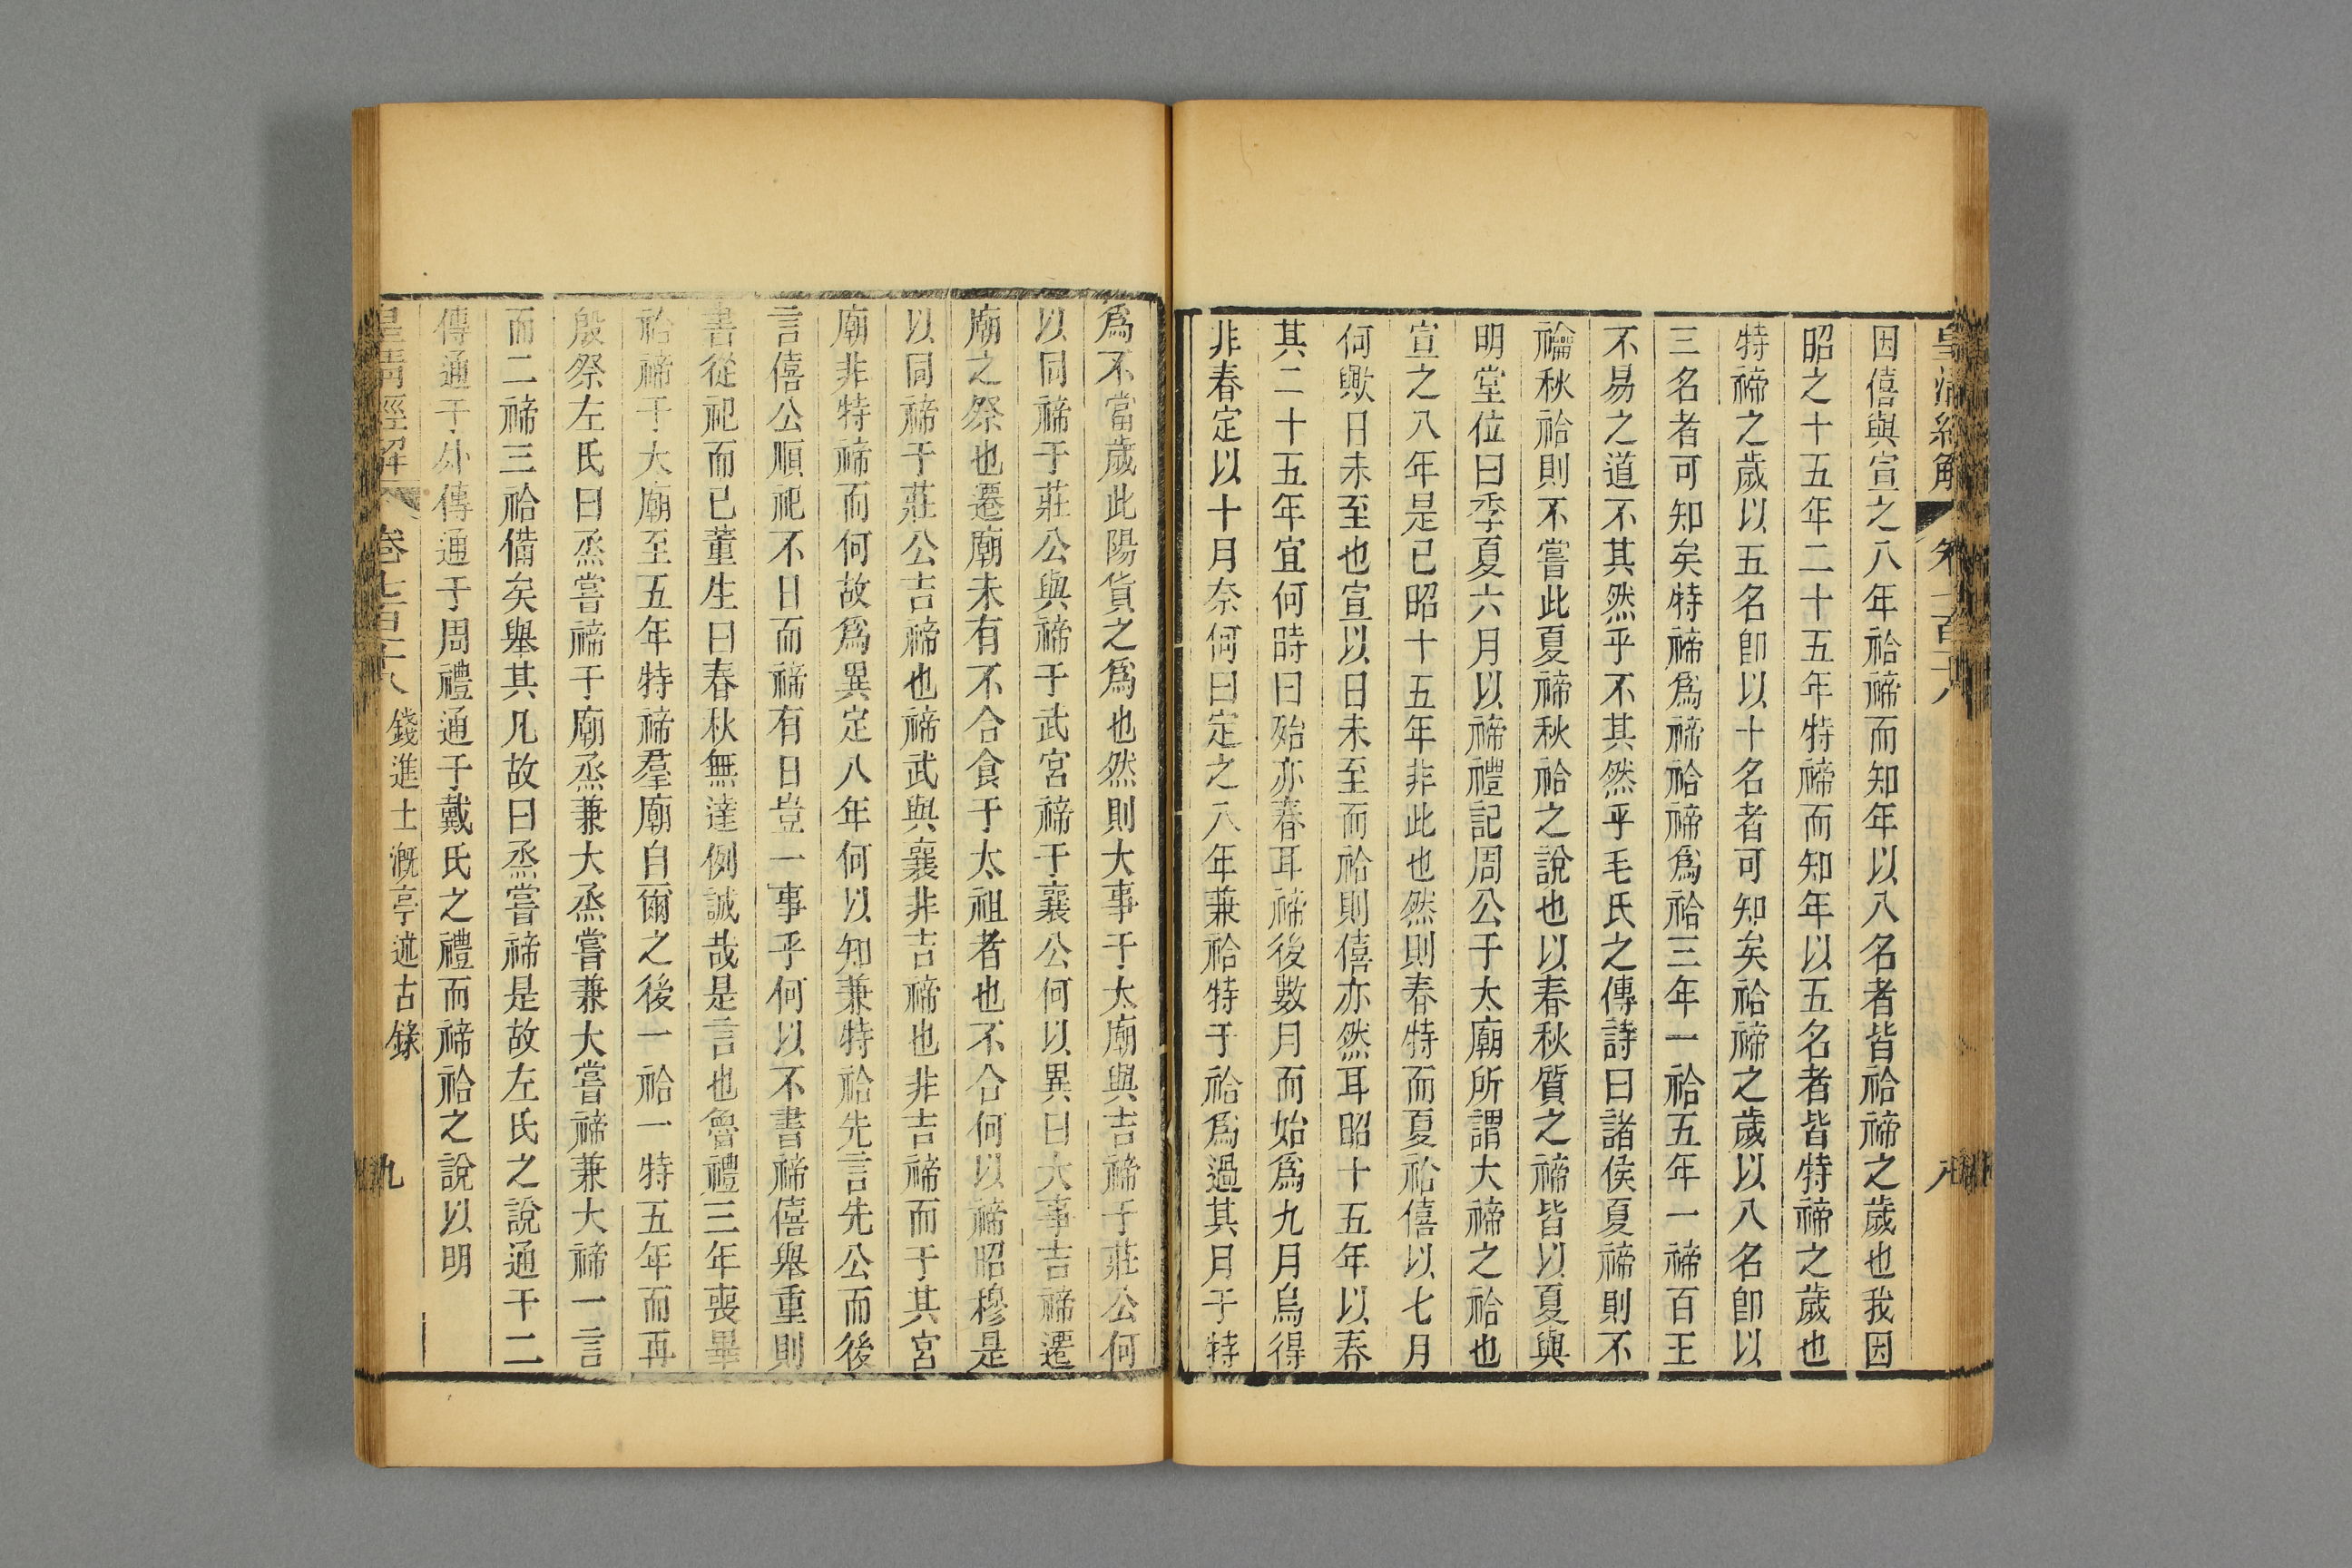 皇清經解
八
因僖與宣之八年祫禘而知年以八名者皆祫禘之歲也我因
昭之十五年二十五年特禘而知年以五名者皆特禘之歲也
特禘之歲以五名卽以十名者可知矣祫禘之歲以八名卽以
三名者可知矣特禘爲禘祫禘爲祫三年一祫五年一禘百王
不易之道不其然乎不其然乎毛氏之傳詩曰諸侯夏禘則不
禴秋祫則不嘗此夏禘秋祫之說也以春秋質之禘皆以夏與
明堂位曰季夏六月以禘禮記周公于太廟所謂大禘之祫也
宣之八年是已昭十五年非此也然則春特而夏祫僖以七月
何歟日未至也宣以日未至而祫則僖亦然耳昭十五年以春
其二十五年宜何時曰殆亦春耳禘後數月而始爲九月烏得
非春定以十月奈何曰定之八年兼祫特于祫爲過其月于特
爲不當歲此陽貨之爲也然則大事于大廟與吉禘于莊公何
以同禘于莊公與禘于武宮禘于襄公何以異曰大事吉禘遷
廟之祭也遷廟未有不合食于太祖者也不合何以禘昭穆是
以同禘于莊公吉禘也禘武與襄非吉禘也非吉禘而于其宮
廟非特禘而何故爲異定八年何以知兼特祫先言先公而後
言僖公順祀不日而禘有日豈一事乎何以不書禘僖舉重則
書從祀而已董生曰春秋無達例誠哉是言也魯禮三年喪畢
祫禘于大廟至五年特禘羣廟自爾之後一祫一特五年而再
殷祭左氏曰烝嘗禘于廟烝兼大烝嘗兼大嘗禘兼大禘一言
而二禘三祫備矣舉其凡故曰烝嘗禘是故左氏之說通于二
傳通于外傳通于周禮通于戴氏之禮而禘祫之說以明
皇清經解 卷七百十八 錢進士溉亭述古錄 九